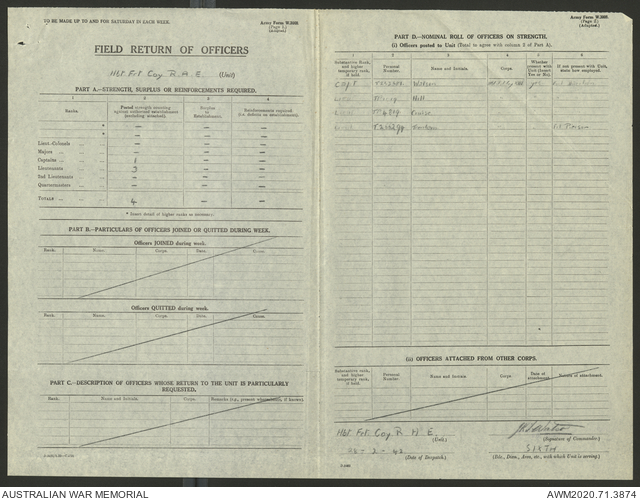 TO BE MADE UP TO AND FOR SATURDAY IN EACH WEEK.
Army Form W.3008.
(Page 1.)
(Adapted.)
FIELD RETURN OF OFFICERS
Hbt. Frt. Coy. R.A.E. (Unit)
PART A.—STRENGTH, SURPLUS OR REINFORCEMENTS REQUIRED.
1 2 3 4
Ranks. Posted strength counting against authorized establishment (excluding attached). Surplus to Establishment. Reinforcements required (i.e. deficits on establishment).
* — — —
* — — —
Lieut.-Colonels — — —
Majors — — —
Captains 1 — —
Lieutenants 3 — —
2nd Lieutenants — — —
Quartermasters — — —
TOTALS 4 — —
* Insert detail of higher ranks as necessary.
PART B.—PARTICULARS OF OFFICERS JOINED OR QUITTED DURING WEEK.
Officers JOINED during week.
Rank. Name. Corps. Date. Cause.
Officers QUITTED during week.
Rank. Name. Corps. Date. Cause.
PART C.—DESCRIPTION OF OFFICERS WHOSE RETURN TO THE UNIT IS PARTICULARLY REQUESTED.
Rank. Name and Initials. Corps. Remarks (i.e., present whereabouts, if known).
Army Form W.3008.
(Page 2.)
(Adapted.)
PART D.—NOMINAL ROLL OF OFFICERS ON STRENGTH.
(i) Officers posted to Unit (Total to agree with column 2 of Part A).
1 2 3 4 5 6
Substantive Rank, and higher temporary rank, if held. Personal Number. Name and Initials. Corps. Whether present with Unit (Insert Yes or No). If not present with Unit, state how employed.
Capt Watson yes
Hall
(ii) OFFICERS ATTACHED FROM OTHER CORPS.
Substantive rank, and higher temporary rank, if held. Personal Number. Name and Initials. Corps. Date of attachment. Nature of attachment.
Hbt. Frt. Coy. R.A.E.
(Unit.)
(Signature of Commander.)
28-2-42
(Date of Despatch.)
SIXTH
(Bde., Divn., Area, etc., with which Unit is serving.)
AUSTRALIAN WAR MEMORIAL
AWM2020.71.3874